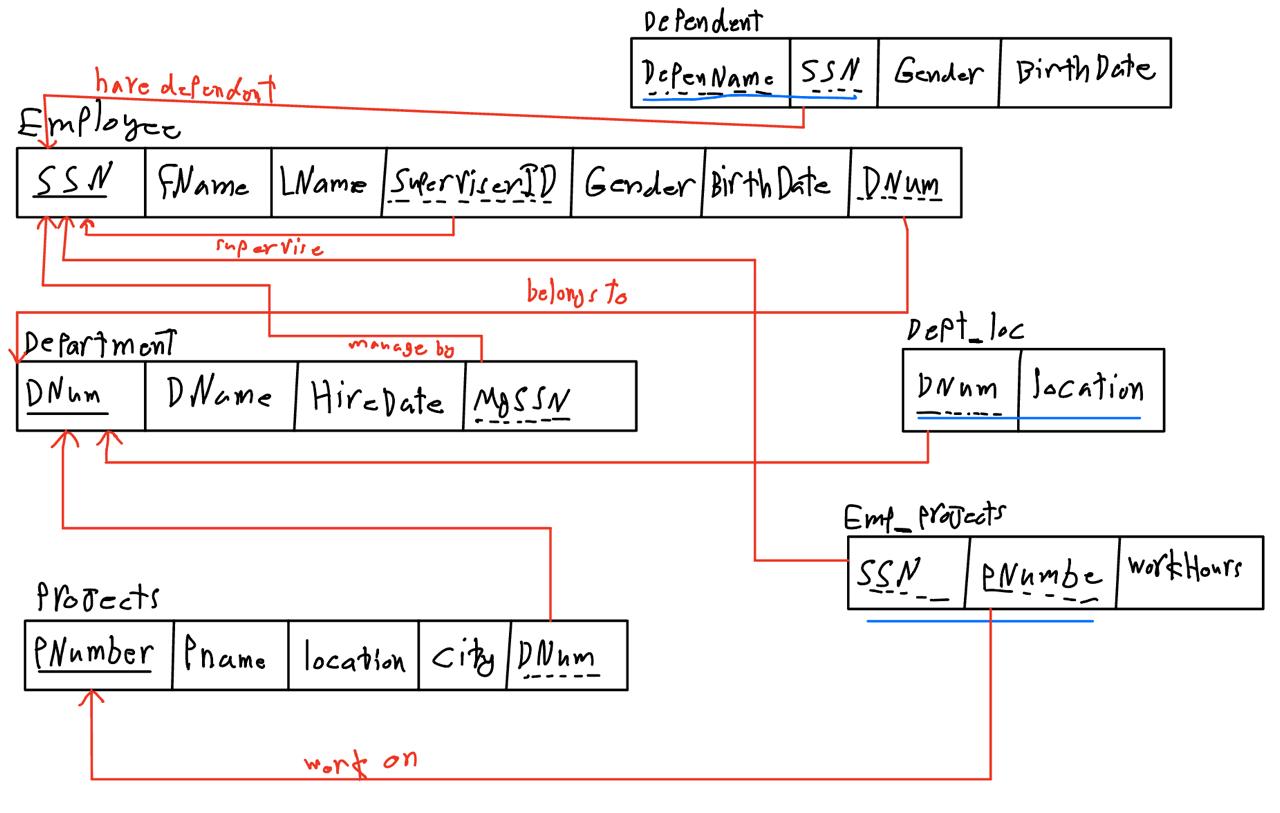 Dependent
DepenName SSN Gender BirthDate
have dependont
Employee
SSN FName LName SuperviserID Gender BirthDate DNum
supervise
belongs to
Department
manage by
DNum DName HireDate MgSSN
Dept_loc
DNum location
Emp_projects
SSN PNumbe workHours
Projects
PNumber Pname location City DNum
work on